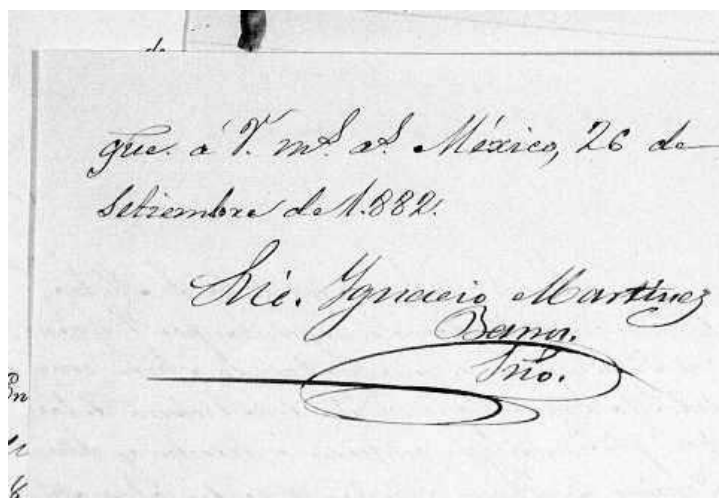 de
gue. á V. ms. as. México, 26 de
Setiembre de 1.882.
Lic. Ygnacio Martinez
Srio.